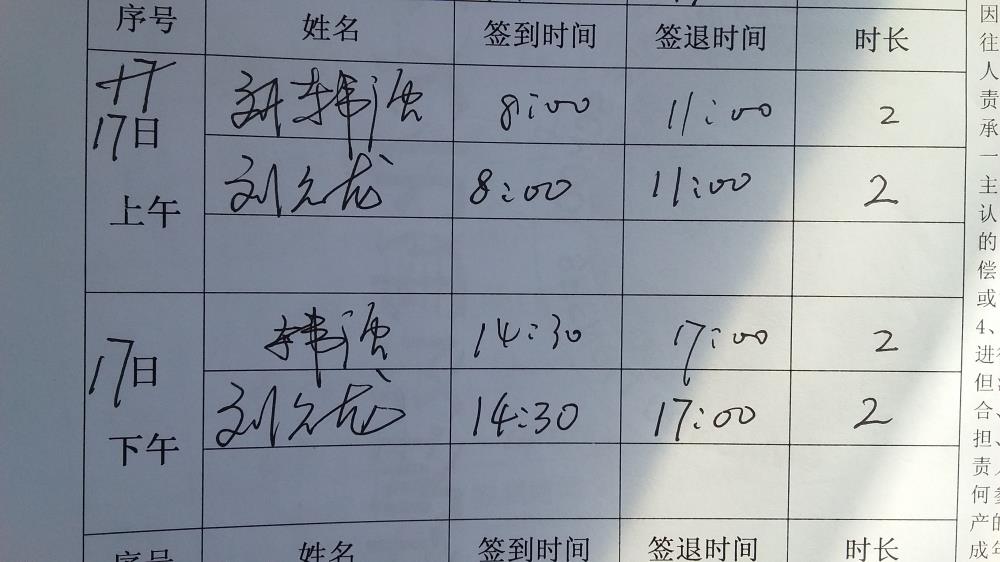 序号 姓名 签到时间 签退时间 时长
17日 上午
韩源 8:00 11:00 2
刘允龙 8:00 11:00 2
17日 下午
韩源 14:30 17:00 2
刘允龙 14:30 17:00 2
序号 姓名 签到时间 签退时间 时长
因
往
人
责
承
一
主
认
的
偿
或
4、
进行
但
合、
担、
责
何
产的
成年